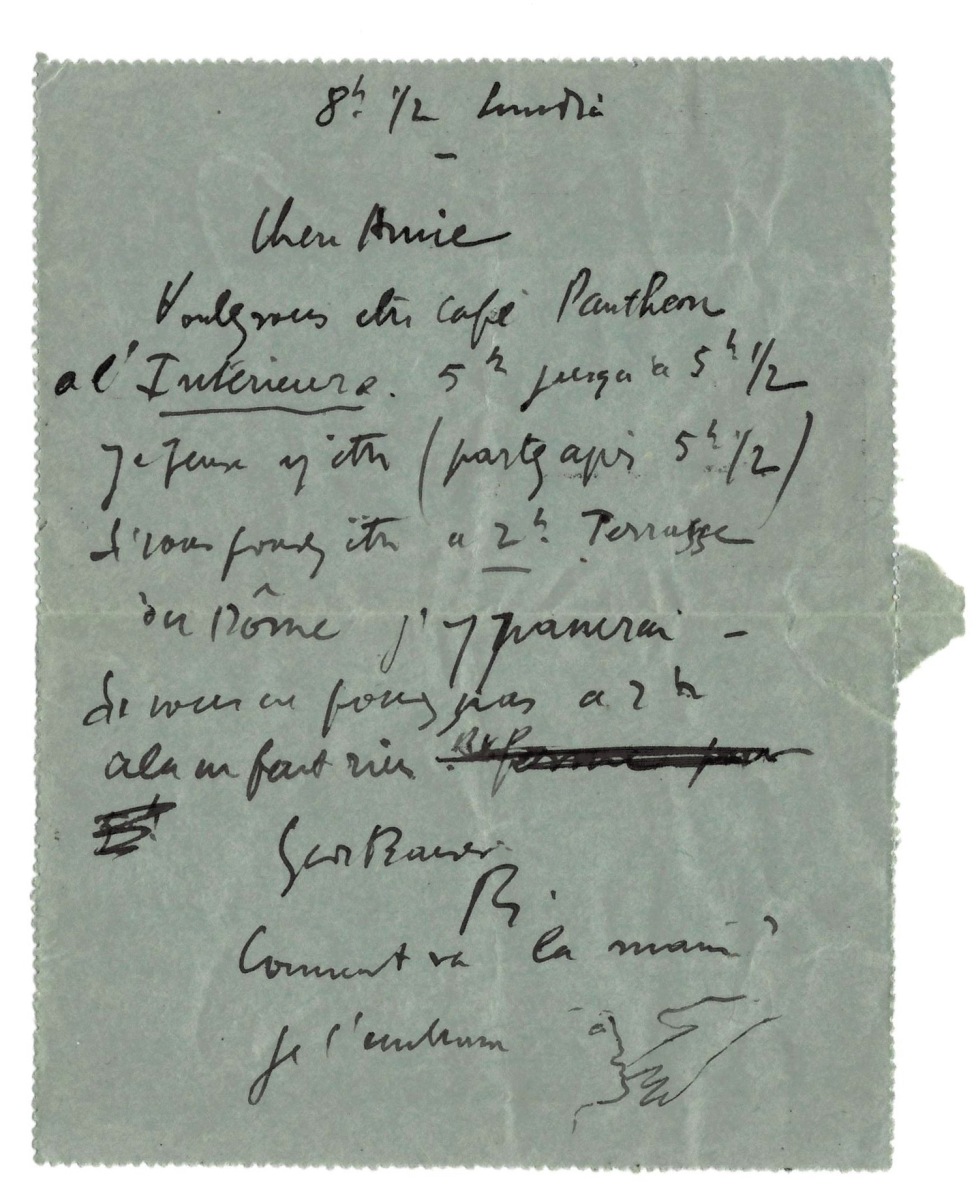 8h 1/2 Lundi
Chere Amie
Voulez vous etre café Pantheon
a l'Intérieure. 5h jusqu'a 5h 1/2
Je peux y etre (partez après 5h 1/2)
Si vous pouvez être a 2h Terrasse
du Dôme j'y passerai —
Si vous ne pouvez pas a 2h
cela ne fait rien.
Bons Baisers
Comment va la main?
Je l'embrasse